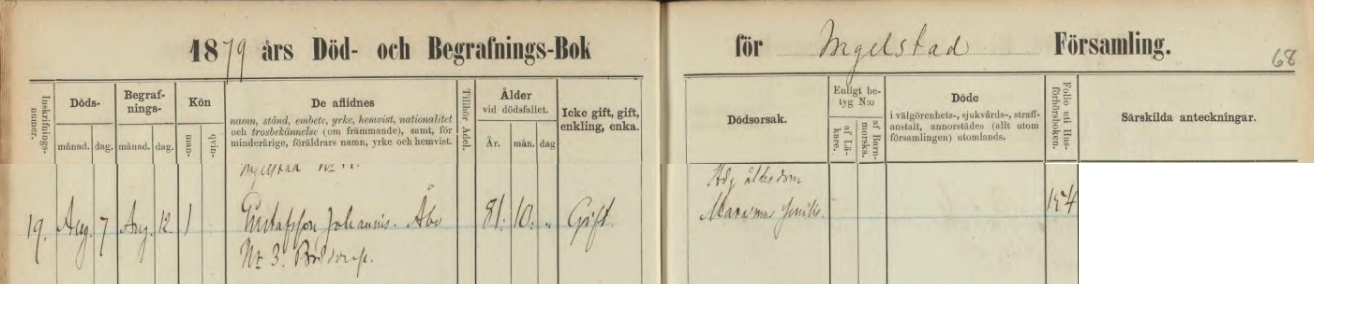 1879 års Död- och Begrafnings-Bok för Ingelstad Församling. 68
Inskrifnings-
numer.
Döds-
månad. dag.
Begraf-
nings-
månad. dag.
Kön
man-
qvin-
De aflidnes
namn, stånd, embete, yrke, hemvist, nationalitet
och trosbekännelse (om främmande), samt, för
minderårige, föräldrars namn, yrke och hemvist.
Tillhör Adel.
Ålder
vid dödsfallet.
År. mån. dag
Icke gift, gift,
enkling, enka.
Dödsorsak.
Enligt be-
tyg N:o
af Lä-
kare.
af Barn-
morska.
Döde
i välgörenhets-, sjukvårds-, straff-
anstalt, annorstädes (allt utom
församlingen) utomlands.
Folio uti Hus-
förhörsboken.
Särskilda anteckningar.
Ingelstad No
19. Aug. 7 Aug. 12. 1 Gustafsson Johannis. Åbo 81. 10. „ Gift.
No 3.
ålderdom
Marasmus senilis. 154